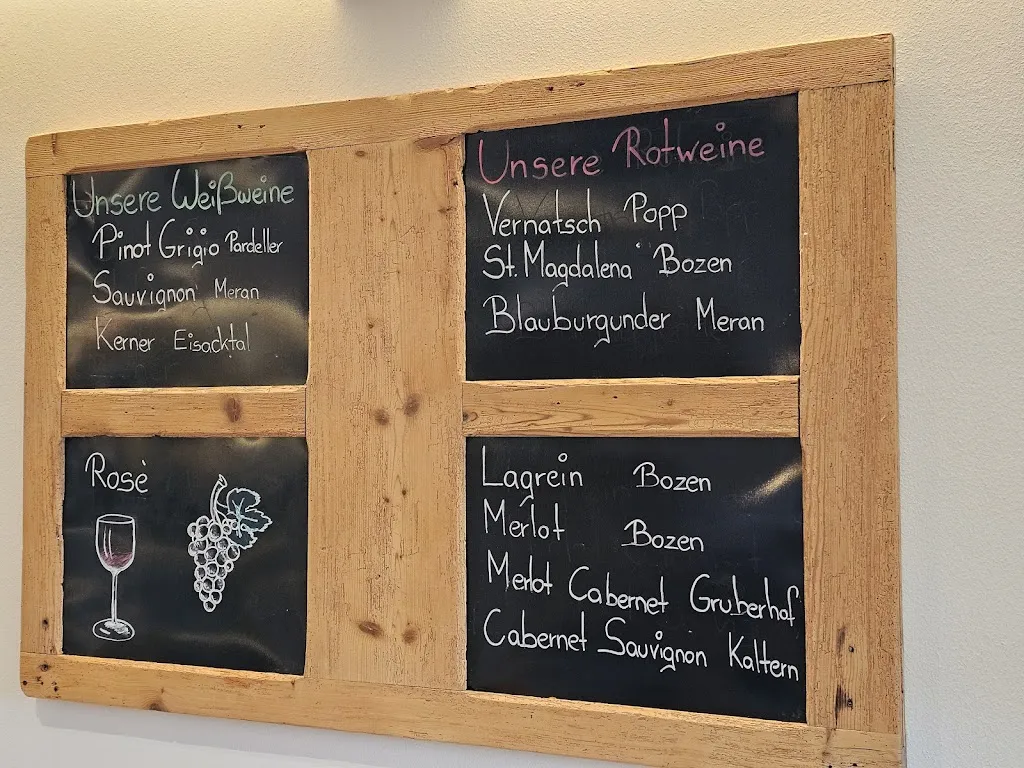 Unsere Weißweine
Pinot Grigio Pardeller
Sauvignon Meran
Kerner Eisacktal
Rosè
Unsere Rotweine
Vernatsch Popp
St. Magdalena Bozen
Blauburgunder Meran
Lagrein Bozen
Merlot Bozen
Merlot Cabernet Gruberhof
Cabernet Sauvignon Kaltern